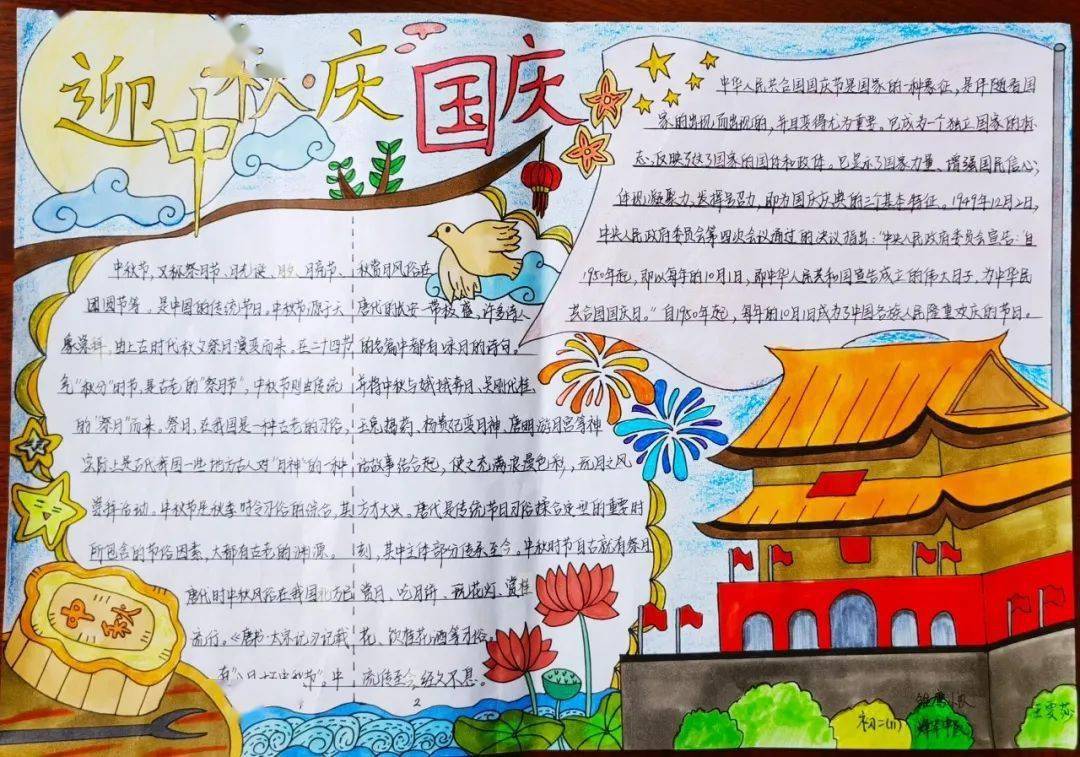 迎中秋·庆国庆
中秋节，又称祭月节、月光诞、月夕、月亮节、
团圆节等，是中国的传统节日。中秋节源于天
象崇拜，由上古时代秋夕祭月演变而来。在二十四节
气"秋分"时节，是古老的"祭月节"，中秋节则由传统
的"祭月"而来。祭月，在我国是一种古老的习俗，
实际上是古代我国一些地方古人对"月神"的一种
崇拜活动。中秋节是秋季时令习俗的综合，其
所包含的节俗因素，大都有古老的渊源。
唐代的中秋风俗在我国北方已
流行。《唐书·太宗记》记载
有"八月十五中秋节"。中
秋赏月风俗在
唐代的长安一带极盛，许多诗人
的名篇中都有咏月的诗句。
并将中秋与嫦娥奔月、吴刚伐桂
玉兔捣药、杨贵妃变月神、唐明皇游月宫等神
话故事结合起，使之充满浪漫色彩，玩月之风
方才大兴。唐代是传统节日习俗揉合定型的重要时
刻，其中主体部分传承至今。中秋时节自古就有祭月
赏月、吃月饼、玩花灯、赏桂
花、饮桂花酒等习俗，
流传至今，经久不息。
2
中华人民共合国国庆节是国家的一种象征，是伴随着国
家的出现而出现的，并且变得尤为重要。它成为一个独立国家的标
志，反映了这个国家的国体和政体。它显示了国家力量、增强国民信心，
体现凝聚力，发挥号召力，即为国庆庆典的三个基本特征。1949年12月2日，
中央人民政府委员会第四次会议通过的决议指出："中央人民政府委员会宣告：自
1950年起，即以每年的10月1日，即中华人民共和国宣告成立的伟大日子，为中华民
共合国国庆日。"自1950年起，每年的10月1日成为了中国各族人民隆重欢庆的节日。
中秋
初二(11)